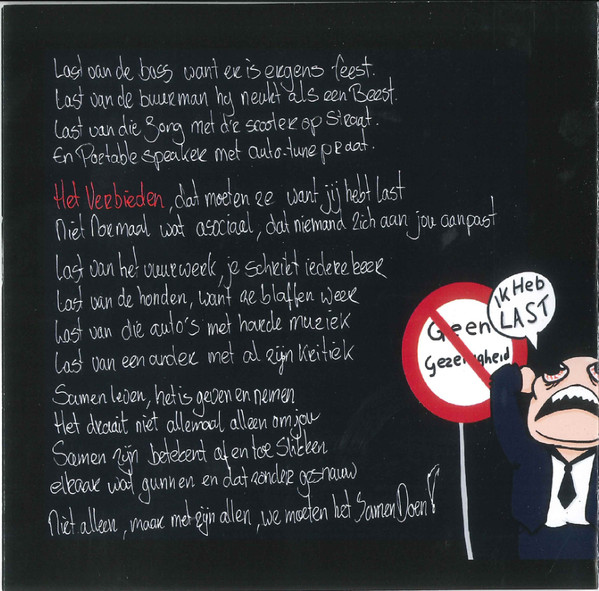 Last van de bass want er is ergens feest.
Last van de buurman hij neukt als een Beest.
Last van die Jong met d'r scooter op Straat.
En Portable speaker met auto-tune praat.
Het Verbieden, dat moeten ze want jij hebt last
Niet Normaal wat asociaal, dat niemand zich aan jou aanpast
Last van het vuurwerk, je schrikt iedere keer
Last van de honden, want ze blaffen weer
Last van die auto's met harde muziek
Last van een ander met al zijn kritiek
Samen leven, het is geven en nemen
Het draait niet allemaal alleen om jou
Samen zijn betekent af en toe Slikken
elkaar wat gunnen en dat zonder gesnauw
Niet alleen, maar met zijn allen, we moeten het Samen Doen!
iK HeB
LAST
Geen
Gezelligheid